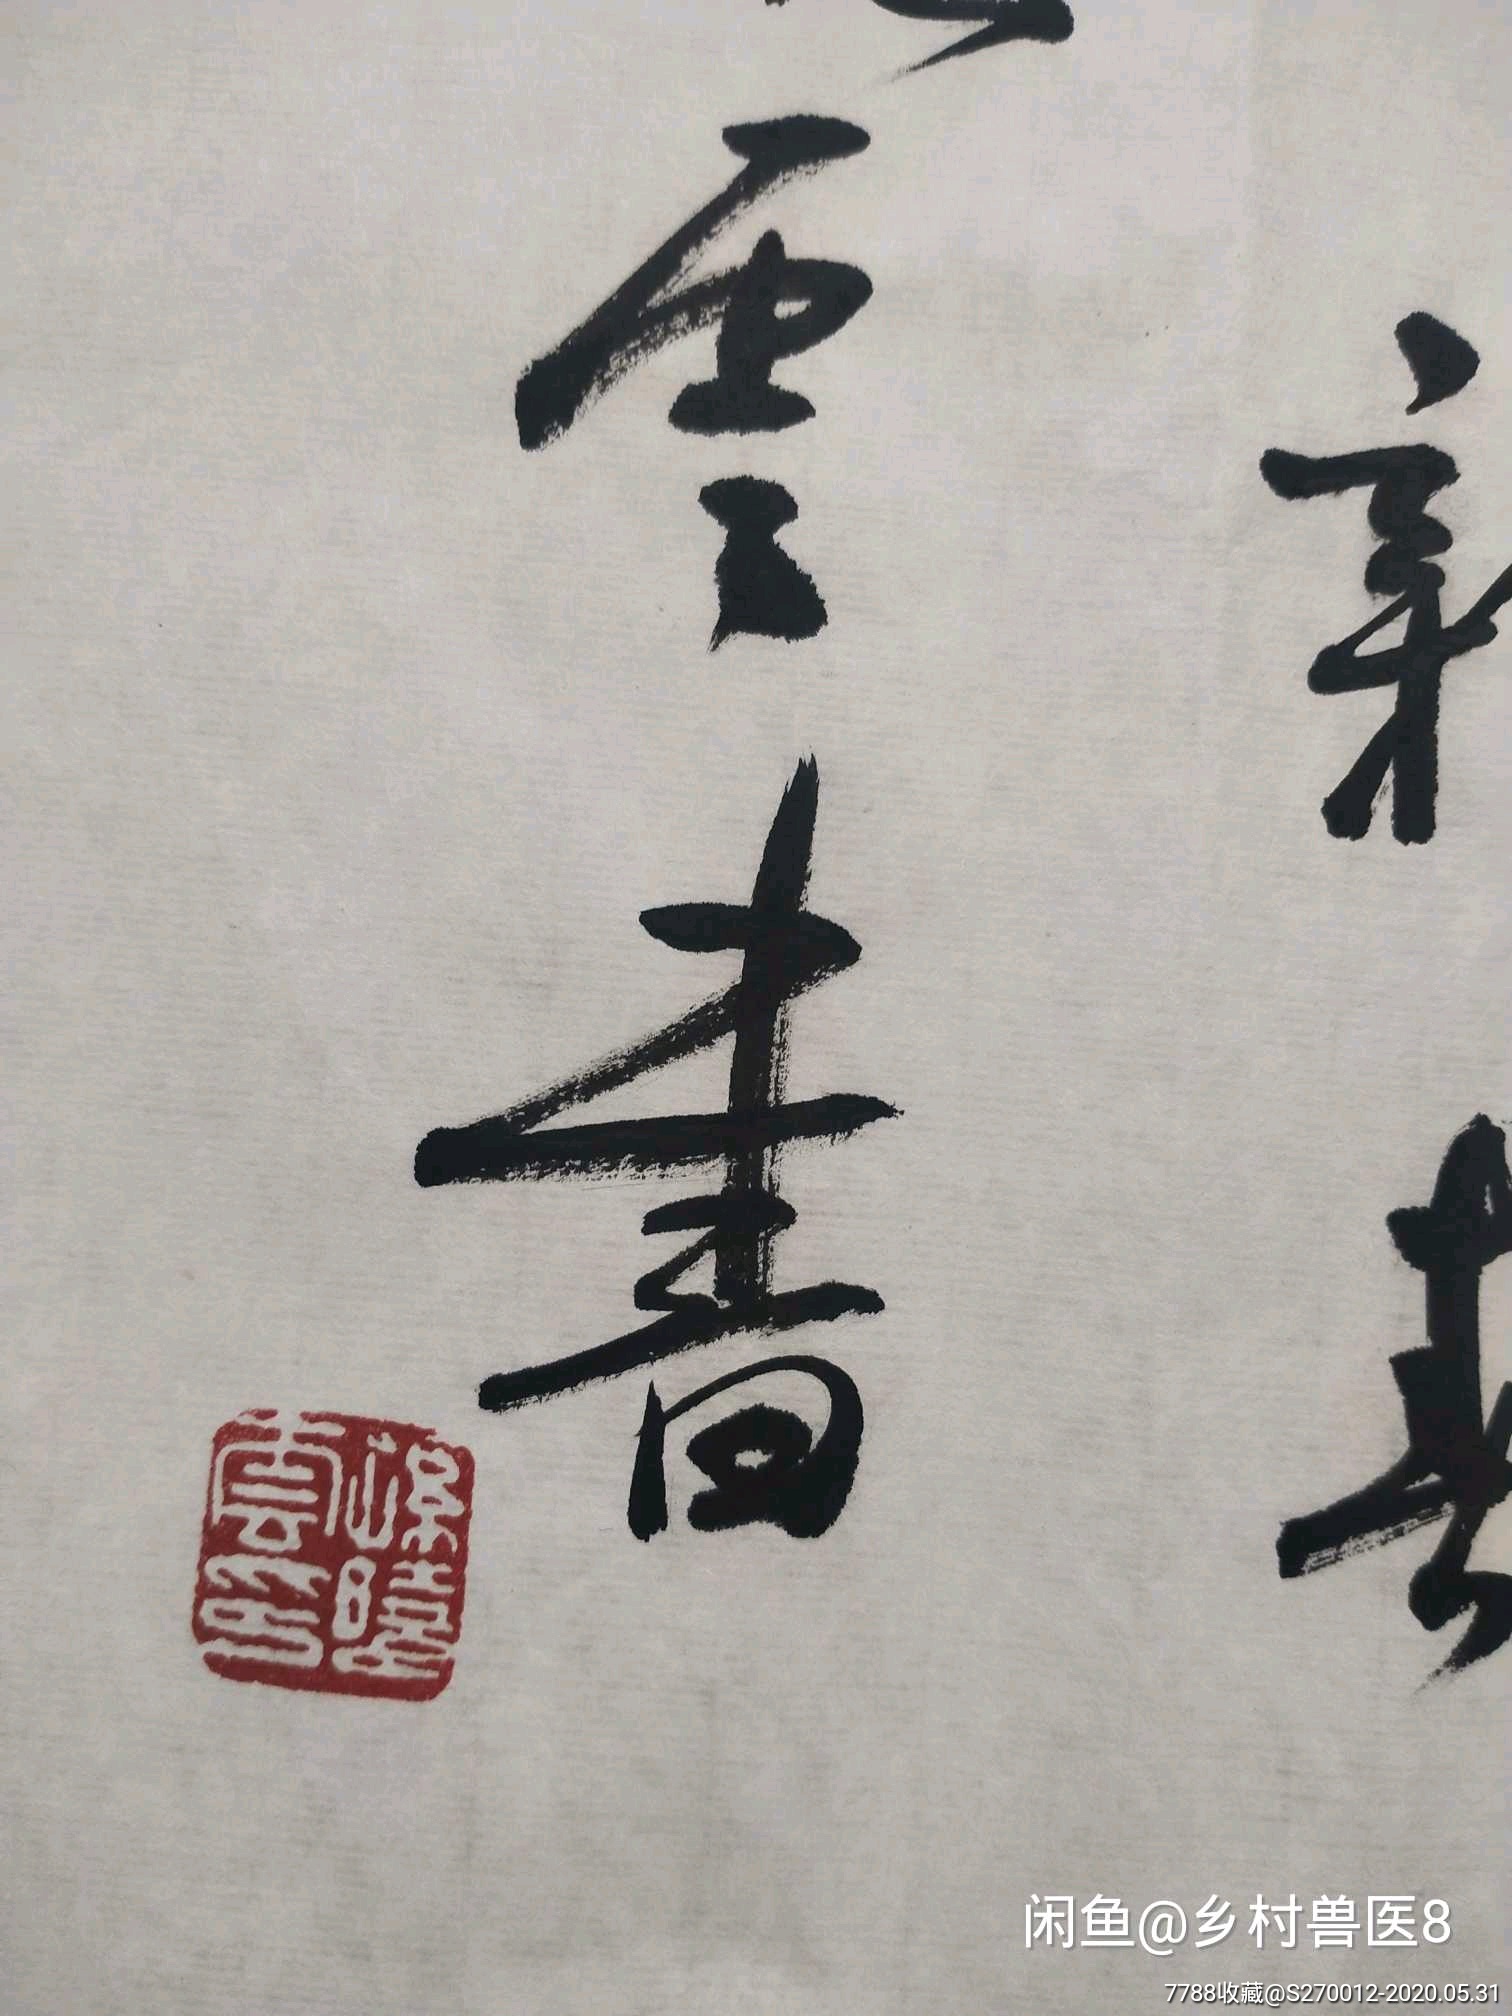 新春
雲書
闲鱼@乡村兽医8
7788收藏@S270012-2020.05.31